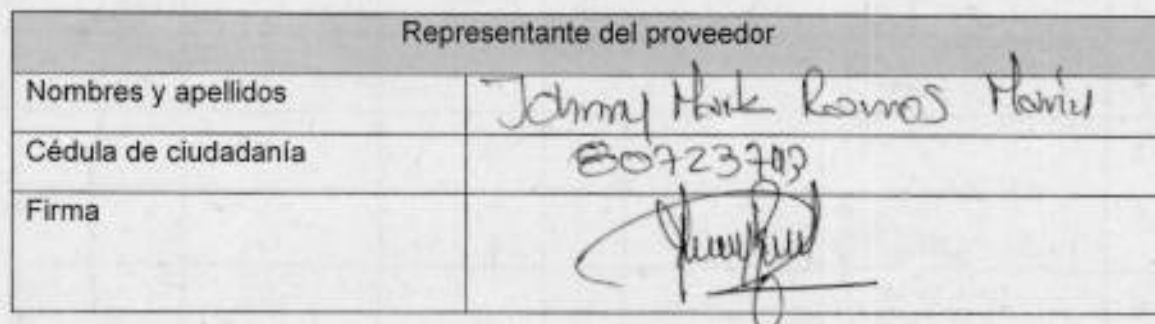 Representante del proveedor
Nombres y apellidos Johnny Mark Ramos
Cédula de ciudadanía
Firma